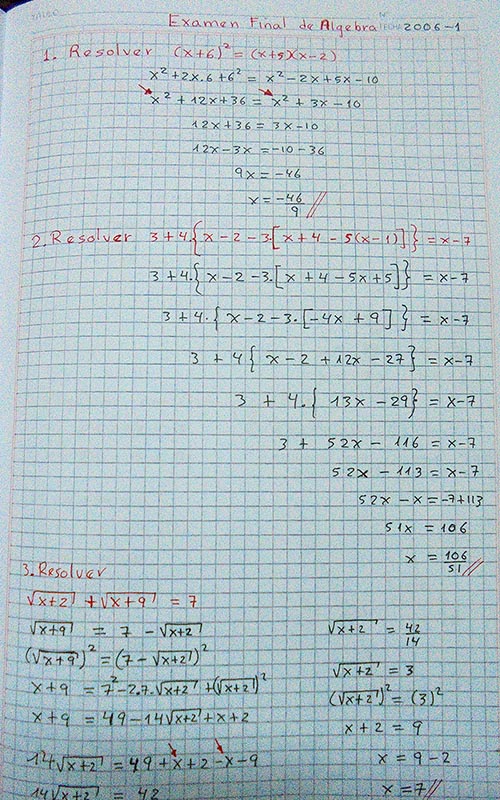 Examen Final de Algebra 2006-1
1. Resolver (x+6)² = (x+5)(x-2)
x²+2x.6+6² = x²-2x+5x-10
x²+12x+36 = x²+3x-10
12x+36 = 3x-10
12x-3x = -10-36
9x = -46
x = -46/9 //
2. Resolver 3+4.{x-2-3.[x+4-5(x-1)]} = x-7
3+4.{x-2-3.[x+4-5x+5]} = x-7
3+4.{x-2-3.[-4x+9]} = x-7
3+4{x-2+12x-27} = x-7
3+4.{13x-29} = x-7
3+52x-116 = x-7
52x-113 = x-7
52x-x = -7+113
51x = 106
x = 106/51 //
3. Resolver
√(x+2) + √(x+9) = 7
√(x+9) = 7-√(x+2)
(√(x+9))² = (7-√(x+2))²
x+9 = 7²-2.7.√(x+2)+(√(x+2))²
x+9 = 49-14√(x+2)+x+2
14√(x+2) = 49+x+2-x-9
14√(x+2) = 42
√(x+2) = 42/14
√(x+2) = 3
(√(x+2))² = (3)²
x+2 = 9
x = 9-2
x = 7 //